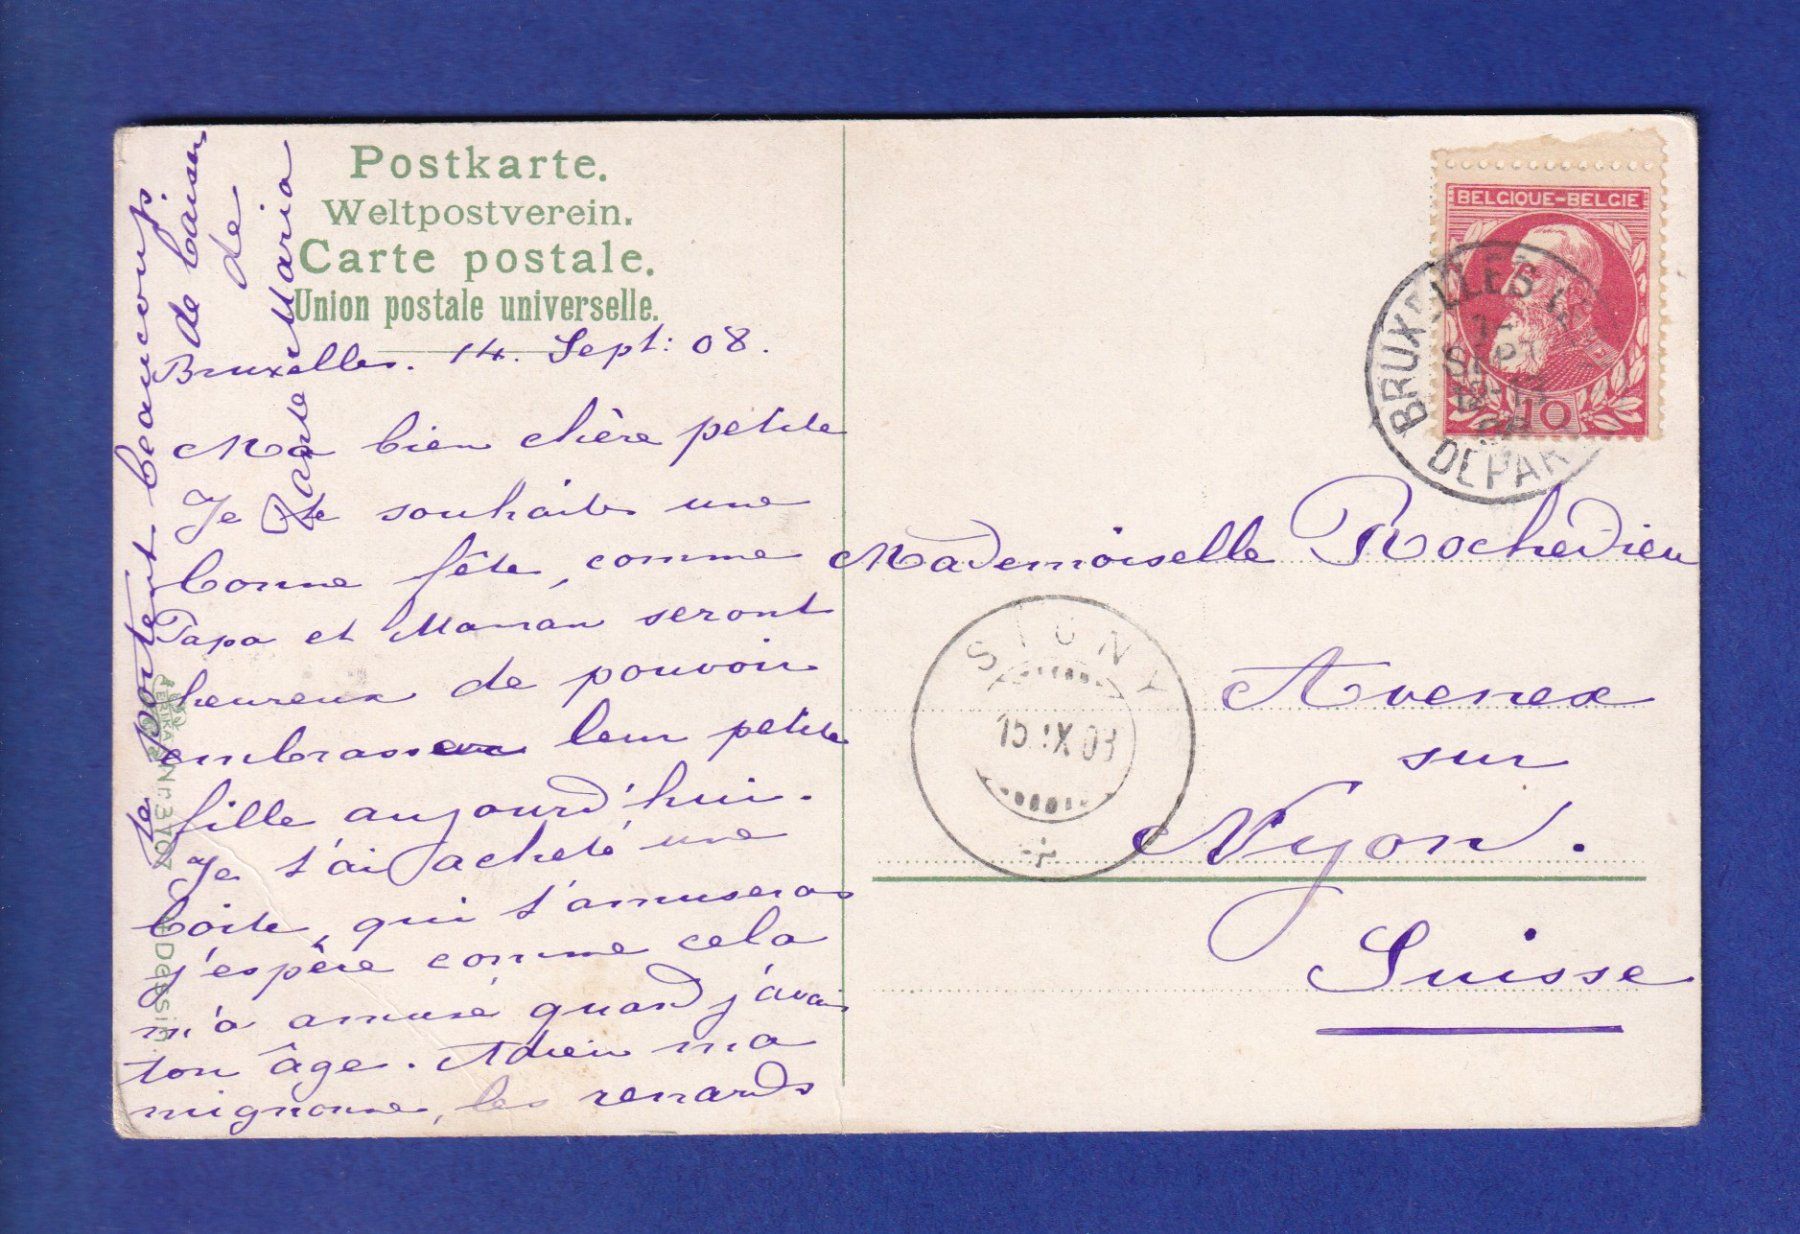 Postkarte.
Weltpostverein.
Carte postale.
Union postale universelle.
Bruxelles. 14. Sept: 08.
Ma bien chère petite
Je te souhaite une
bonne fête, comme
Papa et Maman seront
heureux de pouvoir
embrasser leur petite
fille aujourd'hui.
Je t'ai acheté une
boite, qui t'amuseras
j'espère comme cela
m'a amusé quand j'avais
ton âge. Adieu ma
mignonne, les renards
te portent beaucoup
de baisers
de
Tante Maria
ERIKA
Nr. 3107
Dessin.
BELGIQUE-BELGIE
10
BRUXELLES
SEPT
12-13
DEPART
Mademoiselle Rochedieu
SIGNY
15.IX.08
Avenex
sur
Nyon.
Suisse